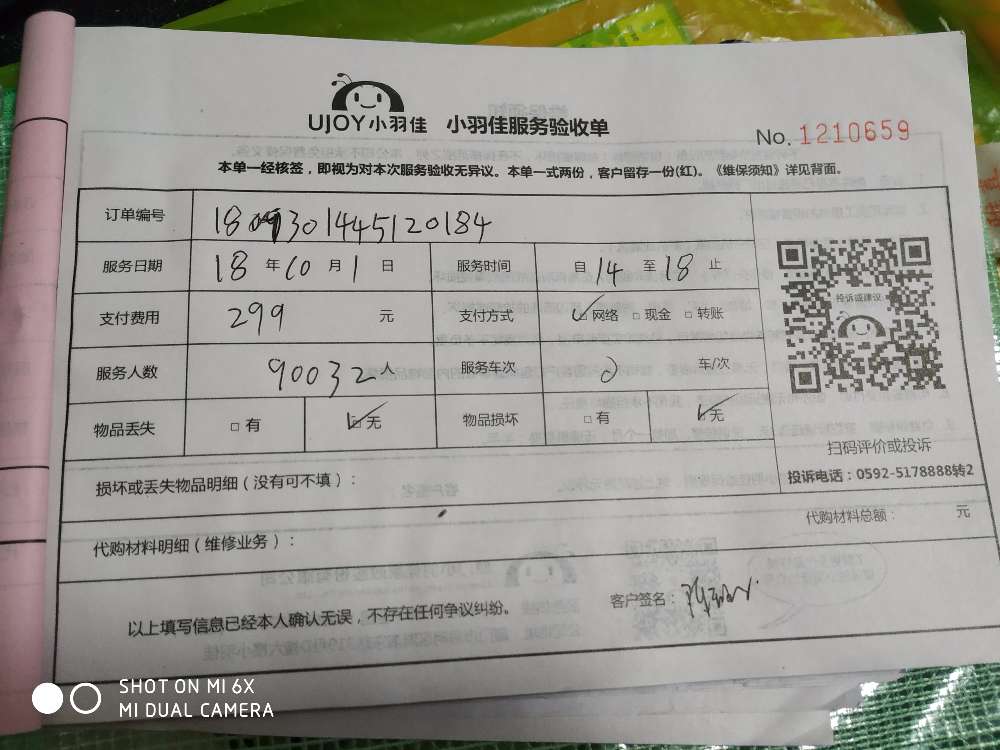 UJOY小羽佳 小羽佳服务验收单
No. 1210659
本单一经核签，即视为对本次服务验收无异议。本单一式两份，客户留存一份(红)。《维保须知》详见背面。
订单编号 1809301445120184
服务日期 18 年 10 月 1 日 服务时间 自 14 至 18 止
投诉或建议
支付费用 299 元 支付方式 ☑网络 □现金 □转账
服务人数 90032人 服务车次 0 车/次
物品丢失 □有 ☑无 物品损坏 □有 ☑无
扫码评价或投诉
投诉电话：0592-5178888转2
损坏或丢失物品明细（没有可不填）：
代购材料总额： 元
代购材料明细（维修业务）：
以上填写信息已经本人确认无误，不存在任何争议纠纷。 客户签名：
SHOT ON MI 6X
MI DUAL CAMERA